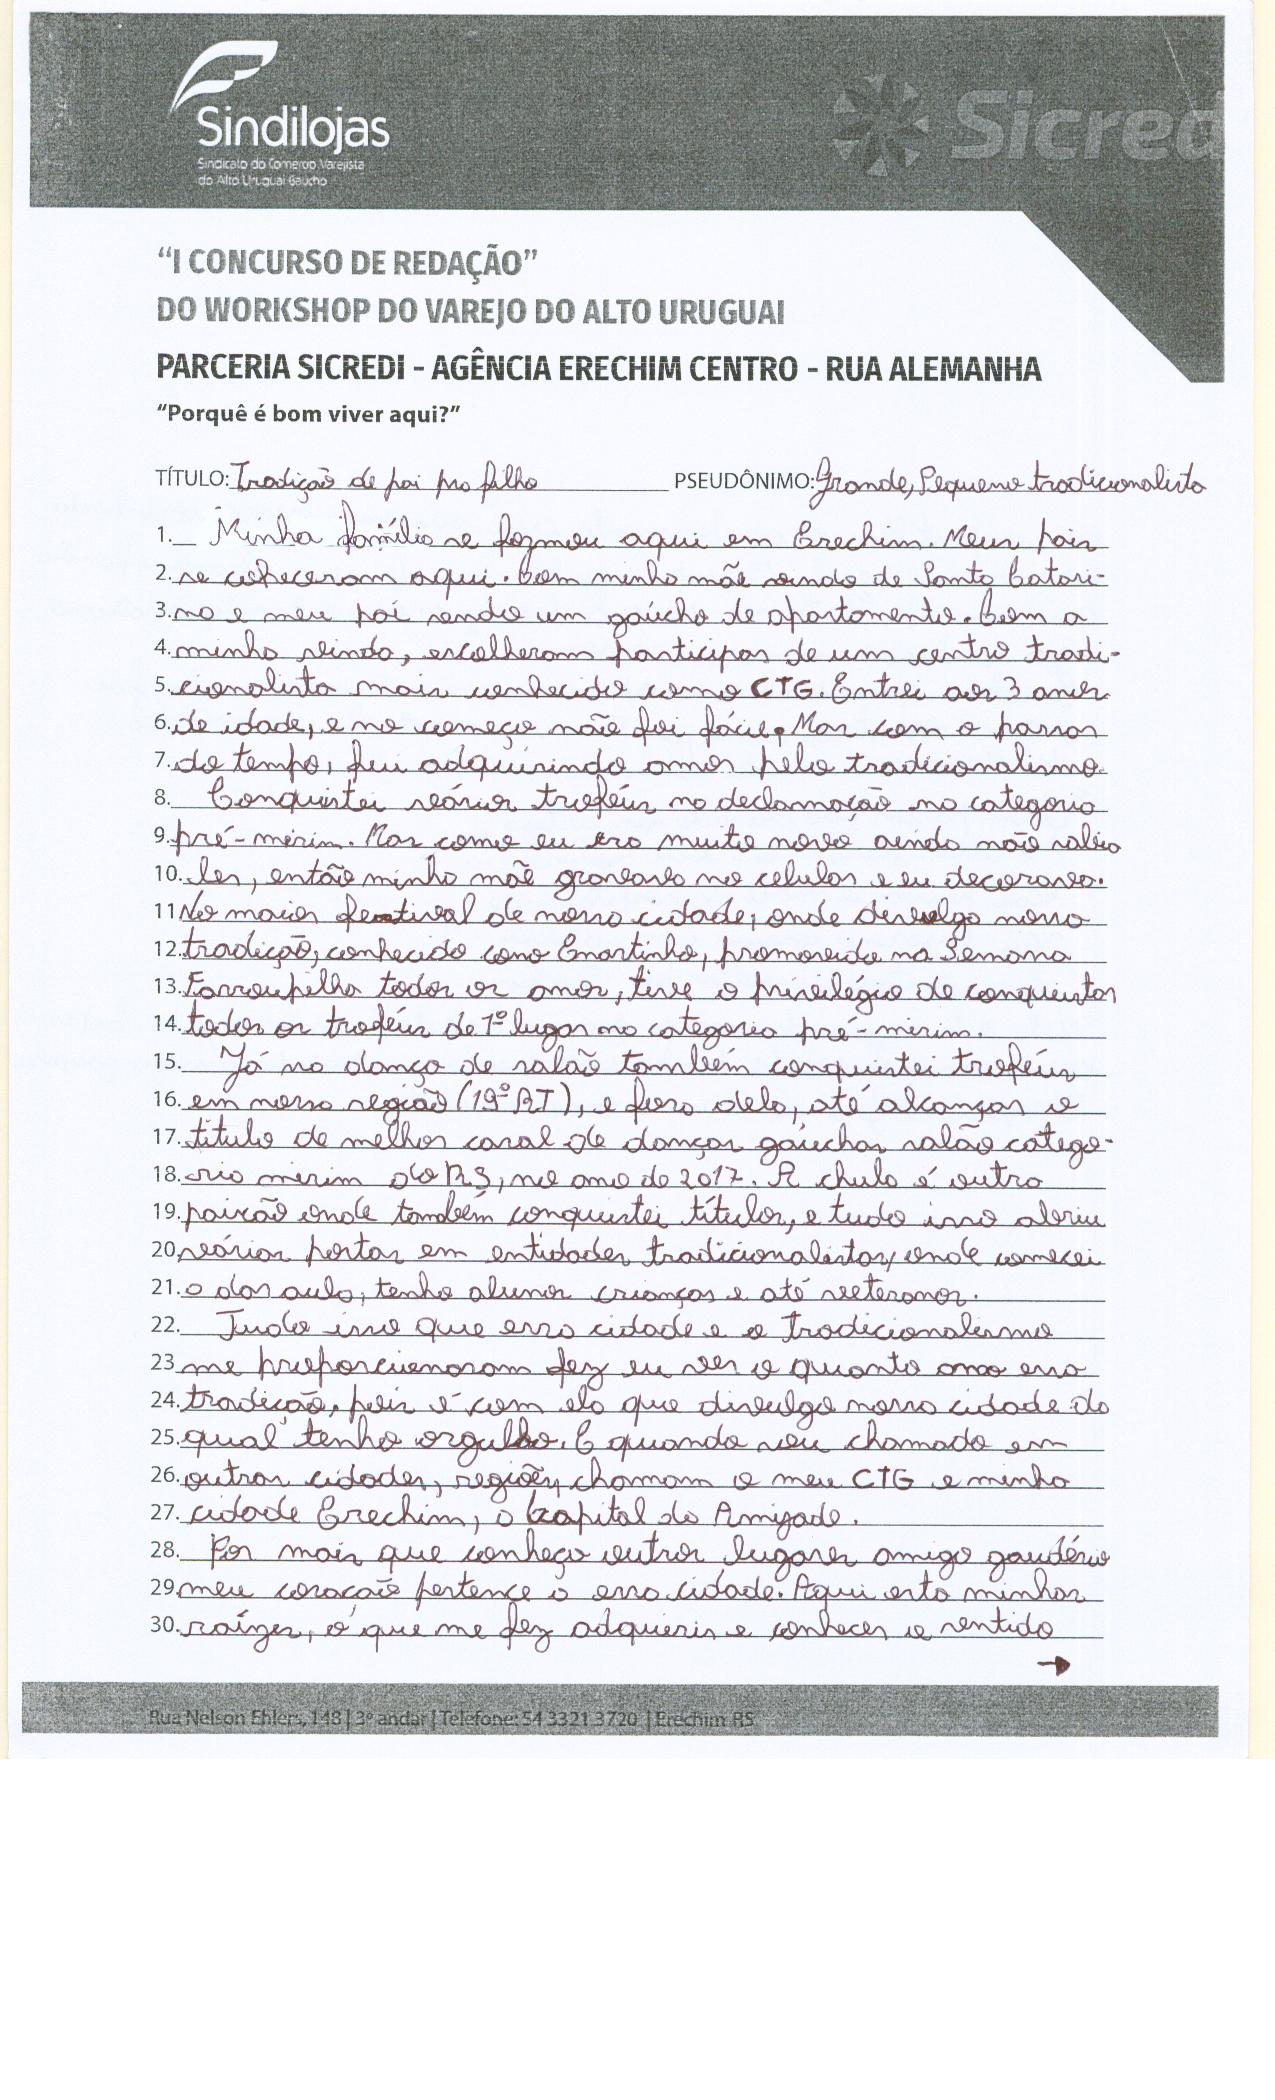 Sindilojas
Sindicato do Comercio Varejista
do Alto Uruguai Gaúcho
Sicred
“I CONCURSO DE REDAÇÃO”
DO WORKSHOP DO VAREJO DO ALTO URUGUAI
PARCERIA SICREDI - AGÊNCIA ERECHIM CENTRO - RUA ALEMANHA
“Porquê é bom viver aqui?”
TÍTULO: Tradição de pai pro filho PSEUDÔNIMO: Grande, Pequeno tradicionalista
1. Minha família se formou aqui em Erechim. Meus pais
2. se coheceram aqui. Com minha mãe vindo de Santa Catari-
3. na e meu pai sendo um gaúcho de apartamento. Com a
4. minha vinda, escolheram participar de um centro tradi-
5. cionalista mais conhecido como CTG. Entrei aos 3 anos
6. de idade, e no começo não foi fácil. Mas com o passar
7. do tempo, fui adquirindo amor pelo tradicionalismo.
8. Conquistei vários troféus na declamação na categoria
9. pré-mirim. Mas como eu era muito novo ainda não sabia
10. ler, então minha mãe gravava no celular e eu decorava.
11 No maior festival de nossa cidade, onde divulga nossa
12. tradição, conhecido como Enartinho, promovido na Semana
13. Farroupilha todos os anos, tive o privilégio de conquistar
14. todos os troféus de 1º lugar na categoria pré-mirim.
15. Já na dança de salão também conquistei troféus
16. em nossa região (19ª RT), e fora dela, até alcançar o
17. título de melhor casal de danças gaúchas salão catego-
18. ria mirim do RS, no ano de 2017. A chula é outra
19. paixão onde também conquistei títulos, e tudo isso abriu
20. várias portas em entidades tradicionalistas, onde comecei
21. a dar aula, tenho alunos crianças e até veteranos.
22. Tudo isso que essa cidade e o tradicionalismo
23 me proporcionaram fez eu ver o quanto amo essa
24. tradição, pois é com ela que divulgo nossa cidade da
25. qual tenho orgulho. E quando sou chamado em
26. outras cidades, regiões, chamam o meu CTG e minha
27. cidade Erechim, a Capital da Amizade.
28. Por mais que conheça outros lugares amigo gaudério
29. meu coração pertence a essa cidade. Aqui esta minhas
30. raízes, o que me fez adquirir e conhecer o sentido
→
Rua Nelson Ehlers, 148 | 3º andar | Telefone: 54 3321 3720 | Erechim RS